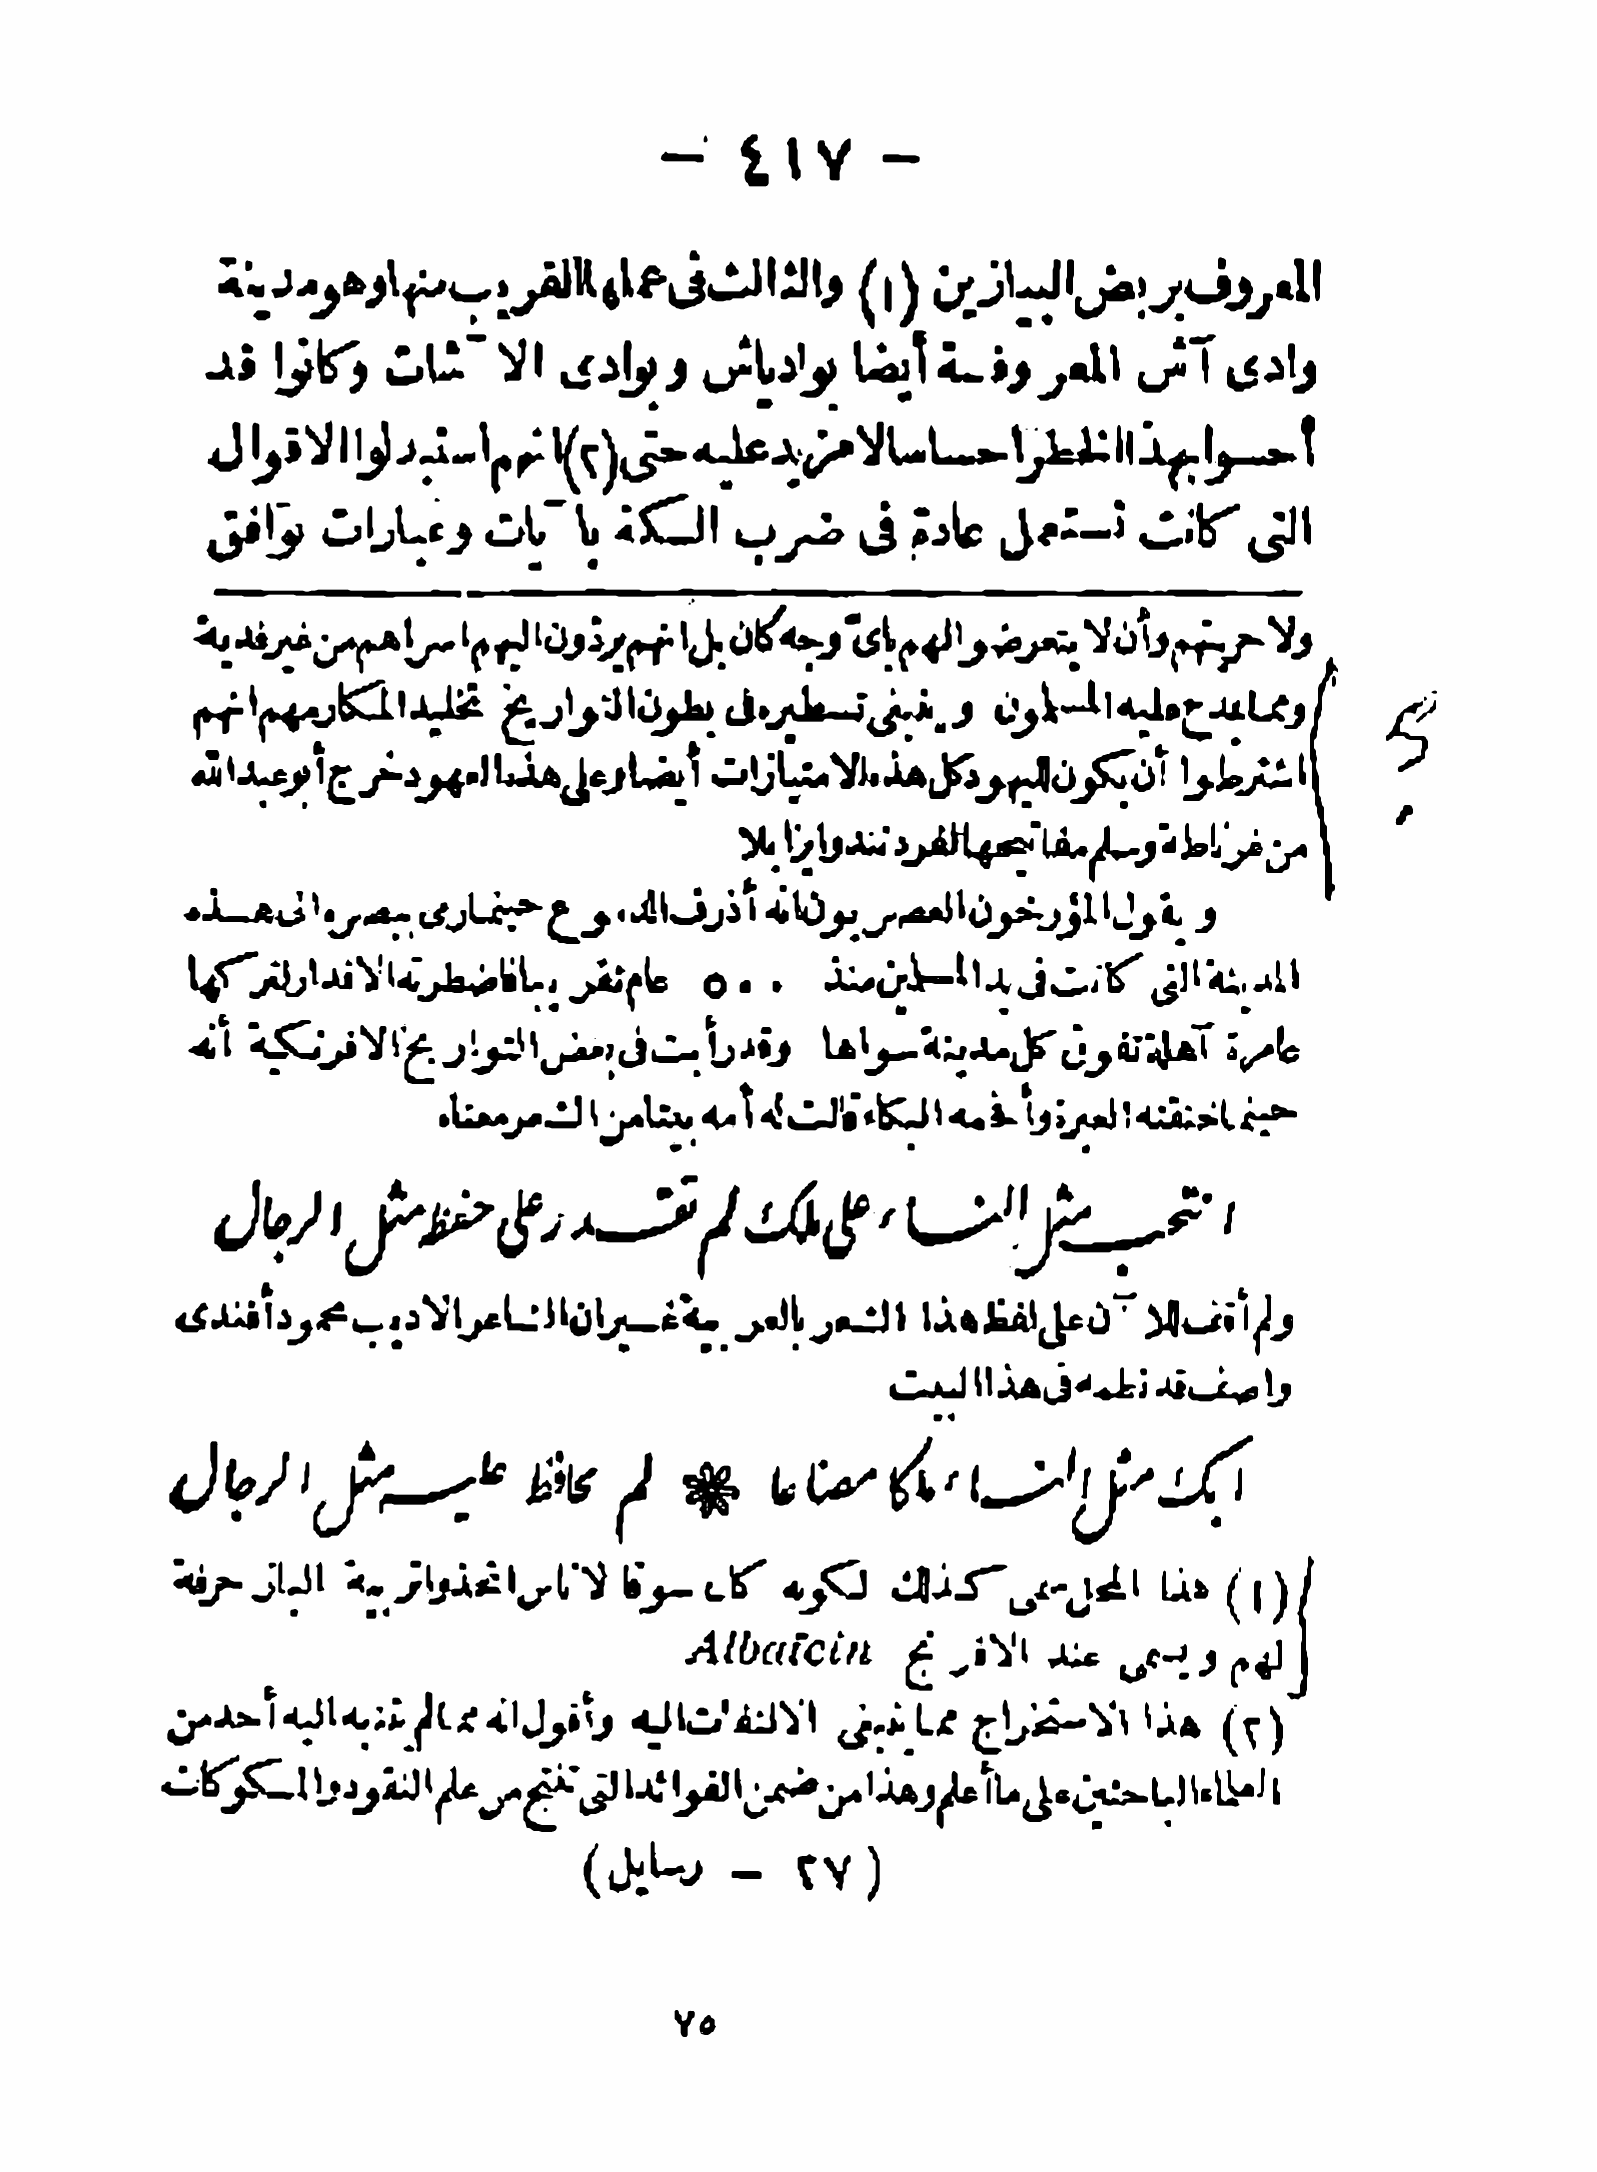 — ٤١٧ —
المعروف بربض البيازين (١) والثالث فى عملها القريب منها وهو مدينة
وادى آش المعروفة أيضا بوادياش وبوادى الآشات وكانوا قد
أحسوا بهذا الخطر احساسا لا مزيد عليه حتى (٢) انهم استبدلوا الاقوال
التى كانت تستعمل عادة فى ضرب السكة بآيات وعبارات توافق
ولا حريتهم وأن لا يتعرضوا لهم بأىّ وجه كان بل انهم يردّون اليهم اسراهم من غير فدية
ومما يمدح عليه المسلمون وينبغى تسطيره فى بطون التواريخ تخليد المكارمهم انهم
اشترطوا أن يكون لليهود كل هذه الامتيازات أيضا وعلى هذا العهود خرج أبو عبد الله
من غرناطة وسلم مفاتيحها لفردنند وايزابلا
ويقول المؤرخون العصريون انه أذرف الدموع حينما رمى ببصره الى هذه
المدينة التى كانت فى يد المسلمين منذ ٥٠٠ عام تقريبا فاضطرته الاقدار لتركها
عامرة آهلة تفوق كل مدينة سواها وقد رأيت فى بعض التواريخ الافرنكية أنه
حينما خنقته العبرة وأفحمه البكاء قالت له أمه بيتا من الشعر معناه
انتحب مثل النساء على ملك لم تقدر على حفظ مثل الرجال
ولم أقف للآن على لفظ هذا الشعر بالعربية غير ان الشاعر الاديب محمود أفندى
واصف قد نظمه فى هذا البيت
ابك مثل النساء ملكا مضاعا * لم تحافظ عليه مثل الرجال
(١) هذا المحل سمى كذلك لكونه كان سوقا لاناس اتخذوا تربية الباز حرفة
لهم ويسمى عند الافرنج Albaïcin
(٢) هذا الاستخراج مما ينبغى الالتفات اليه وأقول انه مما لم يتنبه اليه أحد من
العلماء الباحثين على ما أعلم وهذا من ضمن الفوائد التى تنتج من علم النقود والمسكوكات
(٢٧ — رسايل)
٧٥